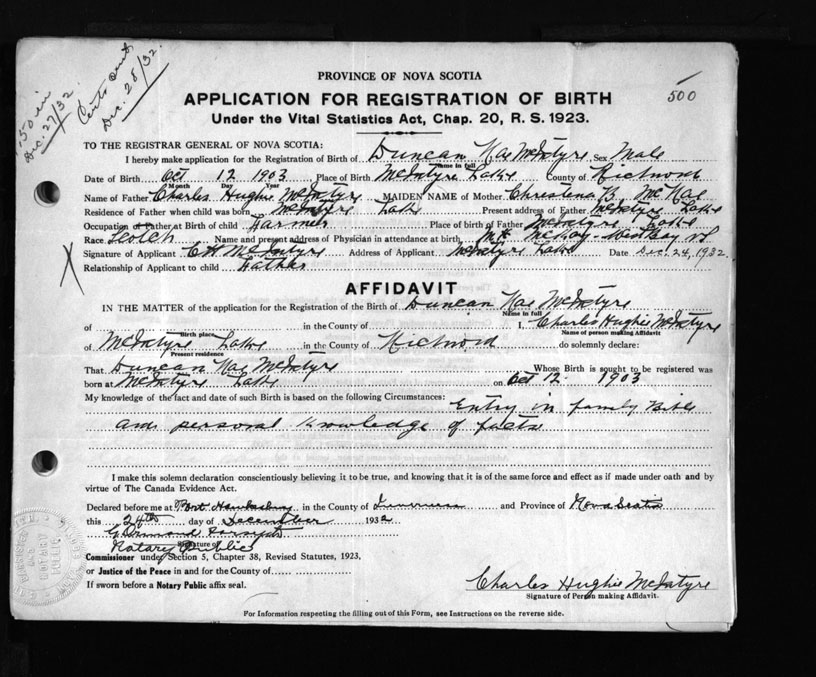 .50 in
Dec. 27/32.
Certs sent
Dec. 28/32.
500
PROVINCE OF NOVA SCOTIA
APPLICATION FOR REGISTRATION OF BIRTH
Under the Vital Statistics Act, Chap. 20, R. S. 1923.
TO THE REGISTRAR GENERAL OF NOVA SCOTIA:
I hereby make application for the Registration of Birth of Duncan Rae McIntyre Sex Male
Name in full
Date of Birth Oct 12 1903 Place of Birth McIntyre Lake County of Richmond
Month Day Year
Name of Father Charles Hughie McIntyre MAIDEN NAME of Mother Christena B. McRae
Residence of Father when child was born McIntyre Lake Present address of Father McIntyre Lake
Occupation of Father at Birth of child Farmer Place of birth of Father McIntyre Lake
Race Scotch Name and present address of Physician in attendance at birth McKay - West Bay NS
Signature of Applicant C H McIntyre Address of Applicant McIntyre Lake Date Dec. 24, 1932.
Relationship of Applicant to child Father
AFFIDAVIT
IN THE MATTER of the application for the Registration of the Birth of Duncan Rae McIntyre
Name in full
of in the County of I, Charles Hughie McIntyre
Birth place Name of person making Affidavit
of McIntyre Lake in the County of Richmond do solemnly declare:
Present residence
That Duncan Rae McIntyre Whose Birth is sought to be registered was
born at McIntyre Lake on Oct 12 1903
My knowledge of the fact and date of such Birth is based on the following Circumstances: Entry in family Bible
and personal knowledge of facts
I make this solemn declaration conscientiously believing it to be true, and knowing that it is of the same force and effect as if made under oath and by
virtue of The Canada Evidence Act.
Declared before me at Port Hawkesbury in the County of Inverness and Province of Nova Scotia
this 24th day of December 1932
Signature of
Notary Public
Commissioner under Section 5, Chapter 38, Revised Statutes, 1923,
or Justice of the Peace in and for the County of
If sworn before a Notary Public affix seal.
Charles Hughie McIntyre
Signature of Person making Affidavit.
For Information respecting the filling out of this Form, see Instructions on the reverse side.